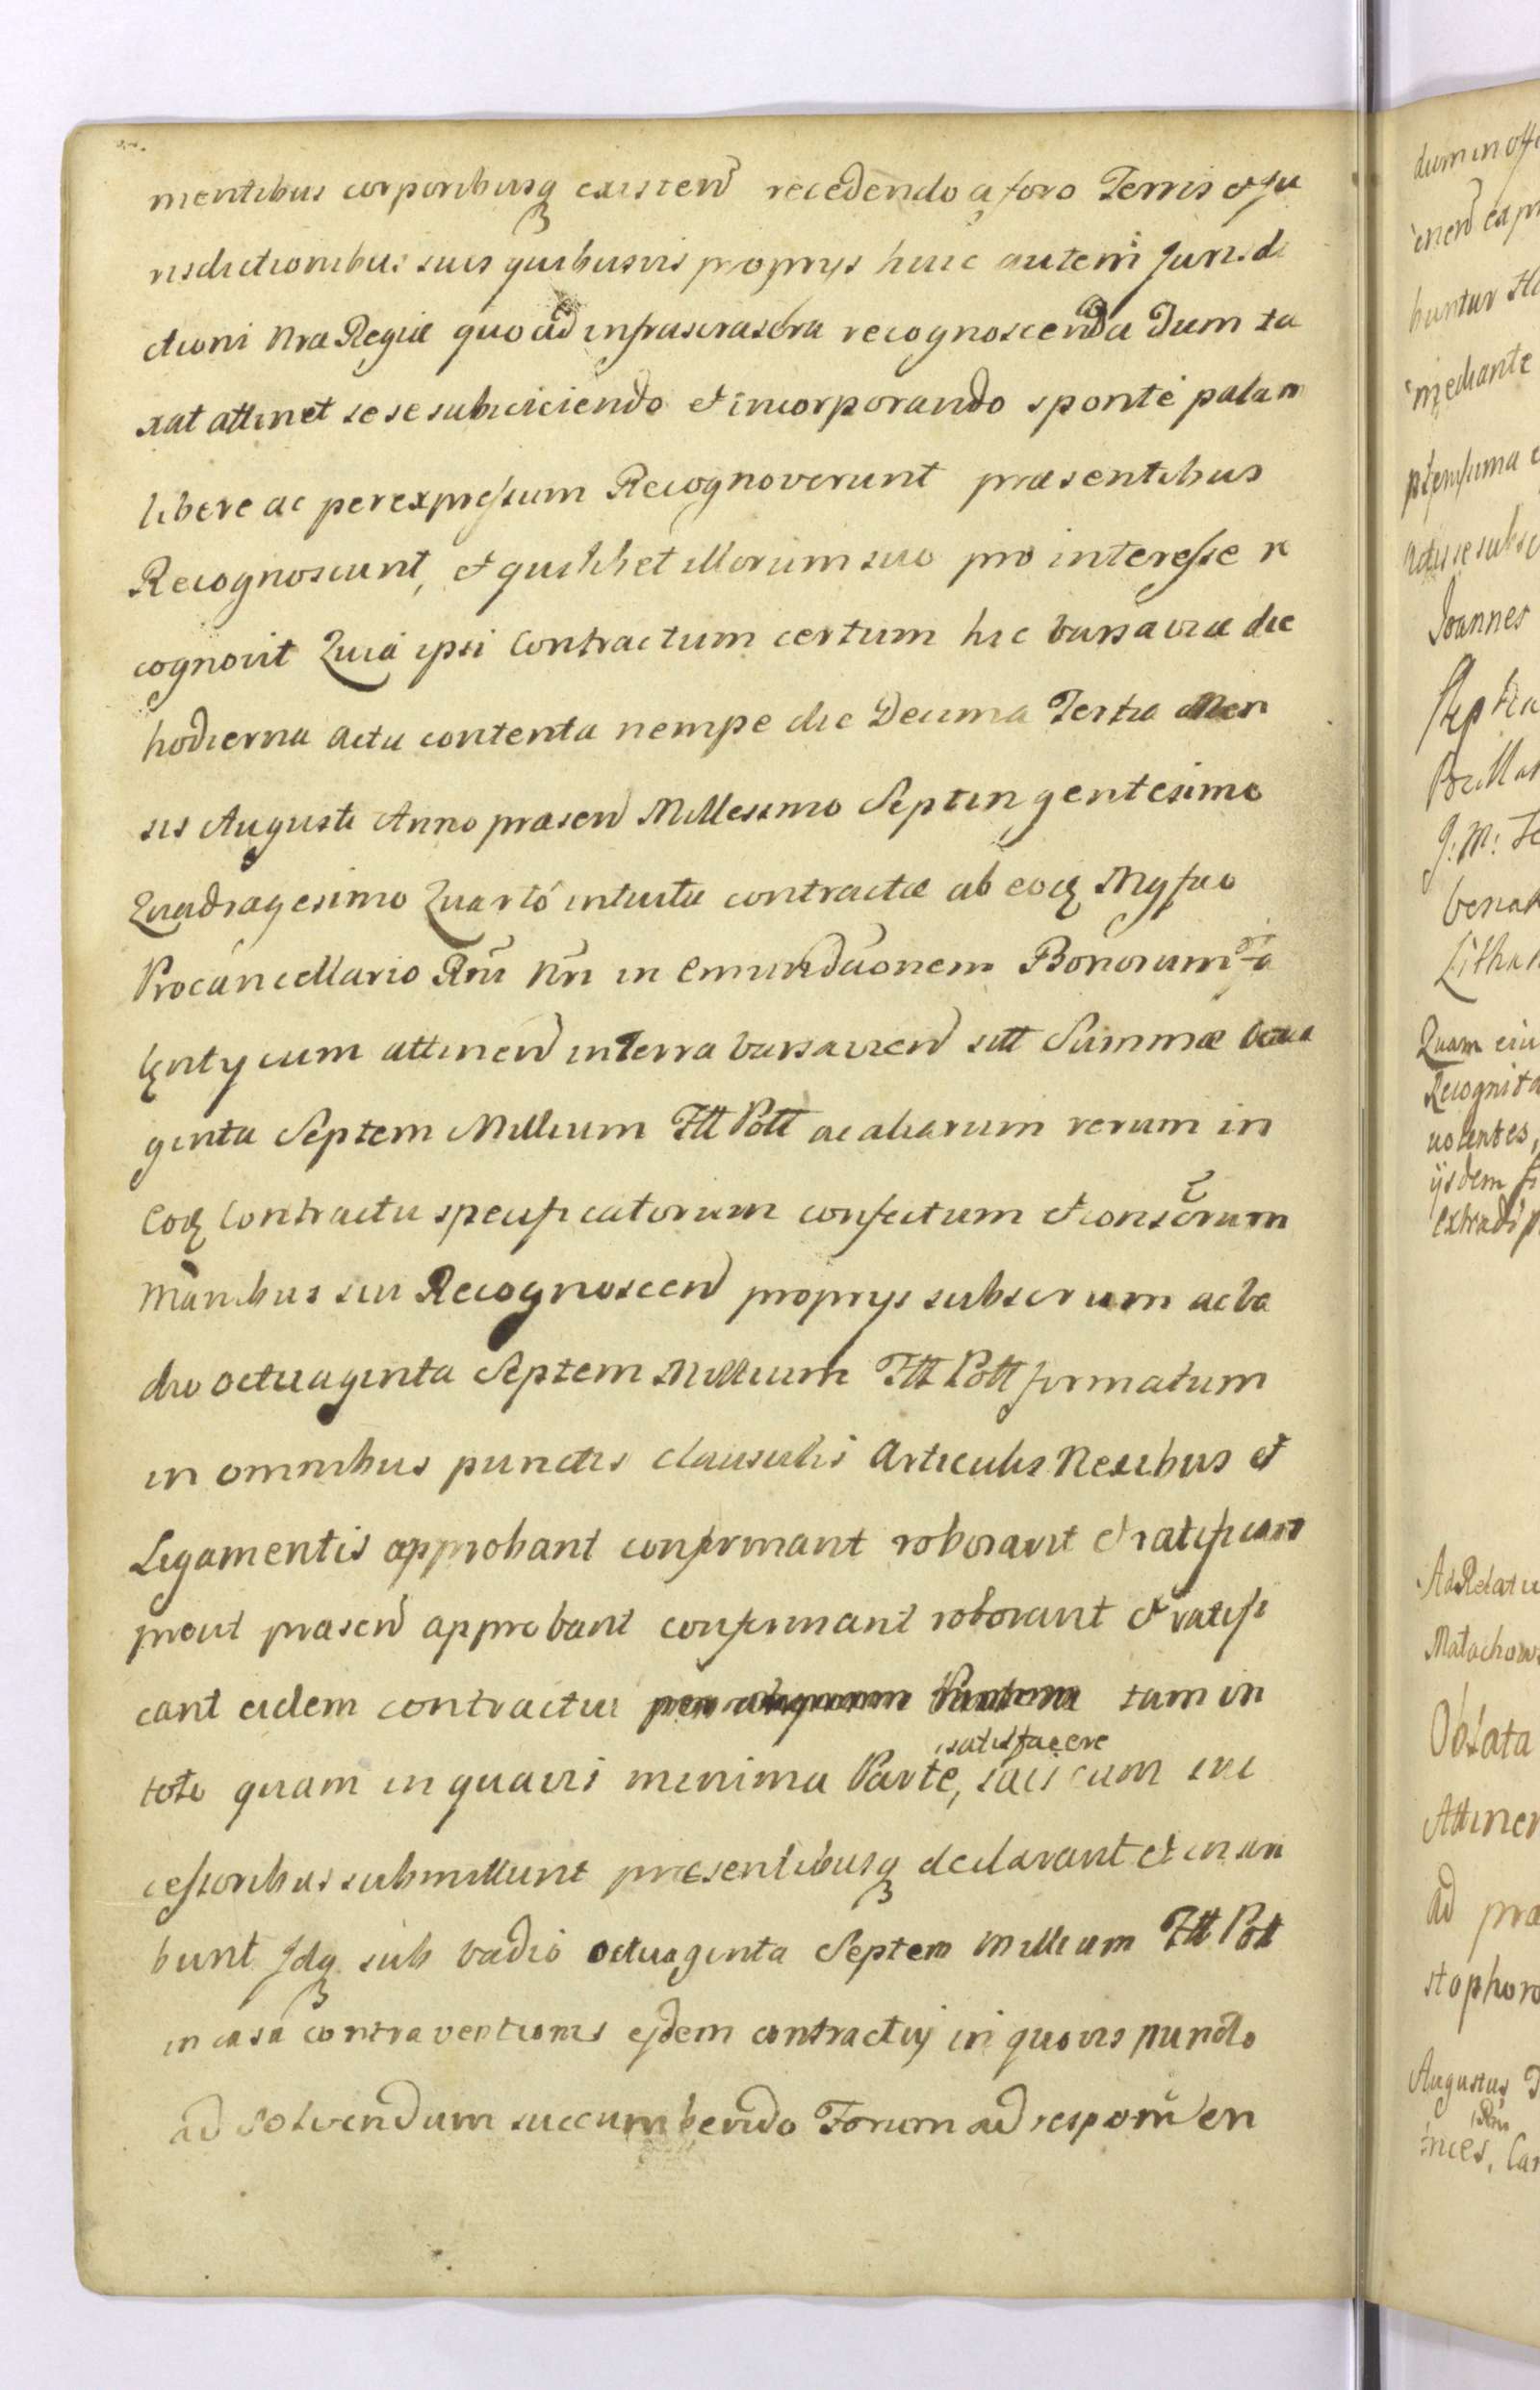 mentibus corporibusq₃ existend recedendo a foro Terris et Ju
risdictionibus suis quibusvis proprys huic autem Jurisdi
ctioni Nrae Regiae quo ad infrascra recognoscenda Dum ta
xat attinet sese subiiciendo et incorporando sponte palam
libere ac per expressum Recognoverunt praesentibus
Recognoscunt, et quilibet illorum suo pro interesse re
cognovit Quia ipsi Contractum certum hic varsaviae die
hodierna actu contenta nempe die Decima Tertia Men
sis Augusti Anno praesend Millesimo Septingentesimo
Quadragesimo Quarto intuitu contractae ab eoq Mgfco
Procancellario Rni Nri in Emundaonem Bonorum
cum attinend in Terra varsaviend sitt Summae
ginta Septem Millium Fltt Poltt ac aliarum rerum in
eoq Contractu specificatorum confectum et conscrum
Manibus sui Recognoscend proprys subscrum ac va
dio octuaginta Septem Millium Fltt Poltt firmatum
in omnibus punctis clausulis Articulis Nexibus et
Ligamentis approbant confirmant roborant et ratificant
prout praesend approbant confirmant roborant et ratifi
cant eidem contractui tam in
satisfacere
toto quam in quavis minima Parte, sais cum suc
cessoribus submittunt praesentibusq₃ declarant et in
bunt Idq₃ sub vadio octuaginta Septem Millium Fltt Poltt
in casu contraventionis ejdem contractuj in quovis puncto
ad solvendum succumbendo Forum ad responden
dum in offi
inend
buntur
mediante
Actis se subsc
Joannes
J: M:
Quam
Recognita
volentes,
ijsdem
extradi
Ad Relatio
Malachows
Oblata
Attinen
ad prae
stophoro
Augustus D
Rni
inces, Car